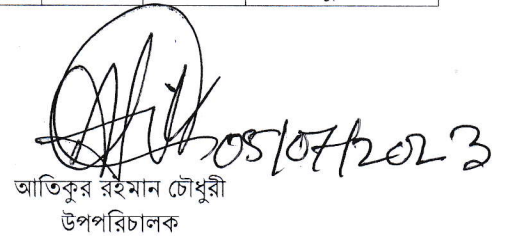 05/07/2023
আতিকুর রহমান চৌধুরী
উপপরিচালক